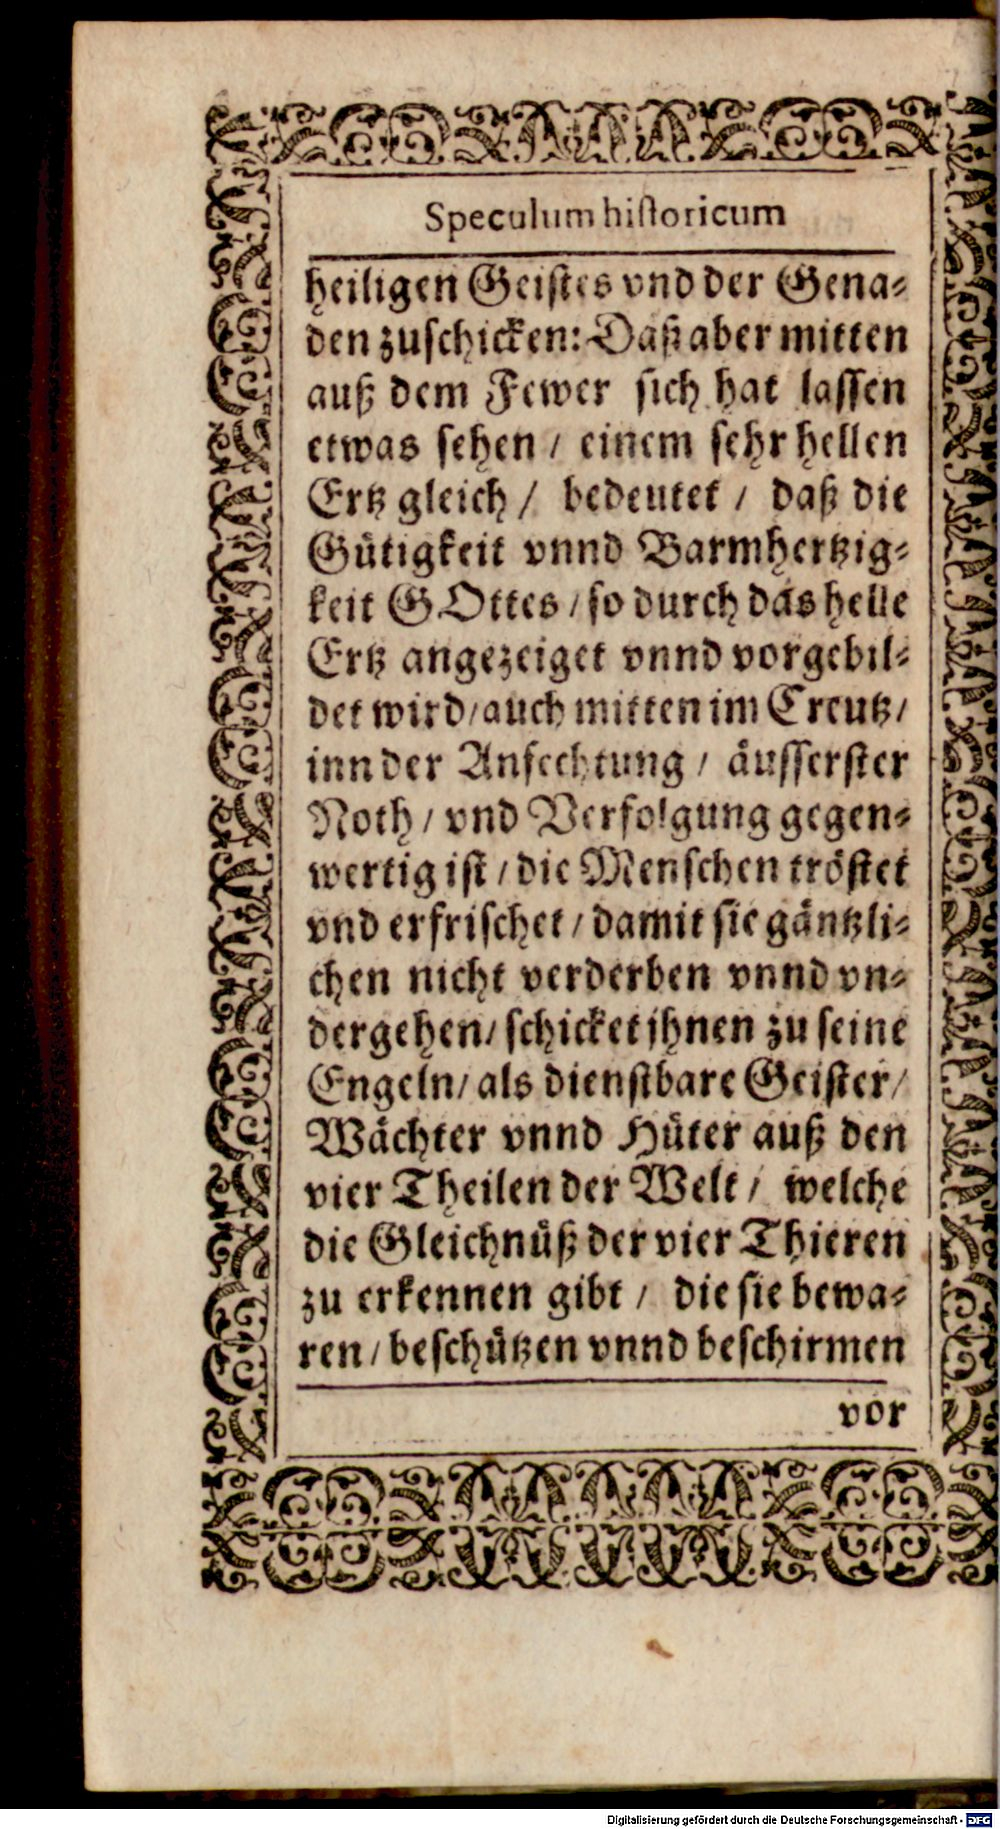 Speculum hiſtoricum
heiligen Geiſtes vnd der Gena⸗
den zuſchicken: Daß aber mitten
auß dem Fewer ſich hat laſſen
etwas ſehen / einem ſehr hellen
Ertz gleich / bedeutet / daß die
Gütigkeit vnnd Barmhertzig⸗
keit GOttes / ſo durch das helle
Ertz angezeiget vnnd vorgebil⸗
det wird / auch mitten im Creutz /
inn der Anfechtung / äuſſerſter
Noth / vnd Verfolgung gegen⸗
wertig iſt / die Menſchen tröſtet
vnd erfriſchet / damit ſie gäntzli⸗
chen nicht verderben vnnd vn⸗
dergehen / ſchicket jhnen zu ſeine
Engeln / als dienſtbare Geiſter /
Wächter vnnd Hüter auß den
vier Theilen der Welt / welche
die Gleichnüß der vier Thieren
zu erkennen gibt / die ſie bewa⸗
ren / beſchützen vnnd beſchirmen
vor
Digitalisierung gefördert durch die Deutsche Forschungsgemeinschaft - DFG